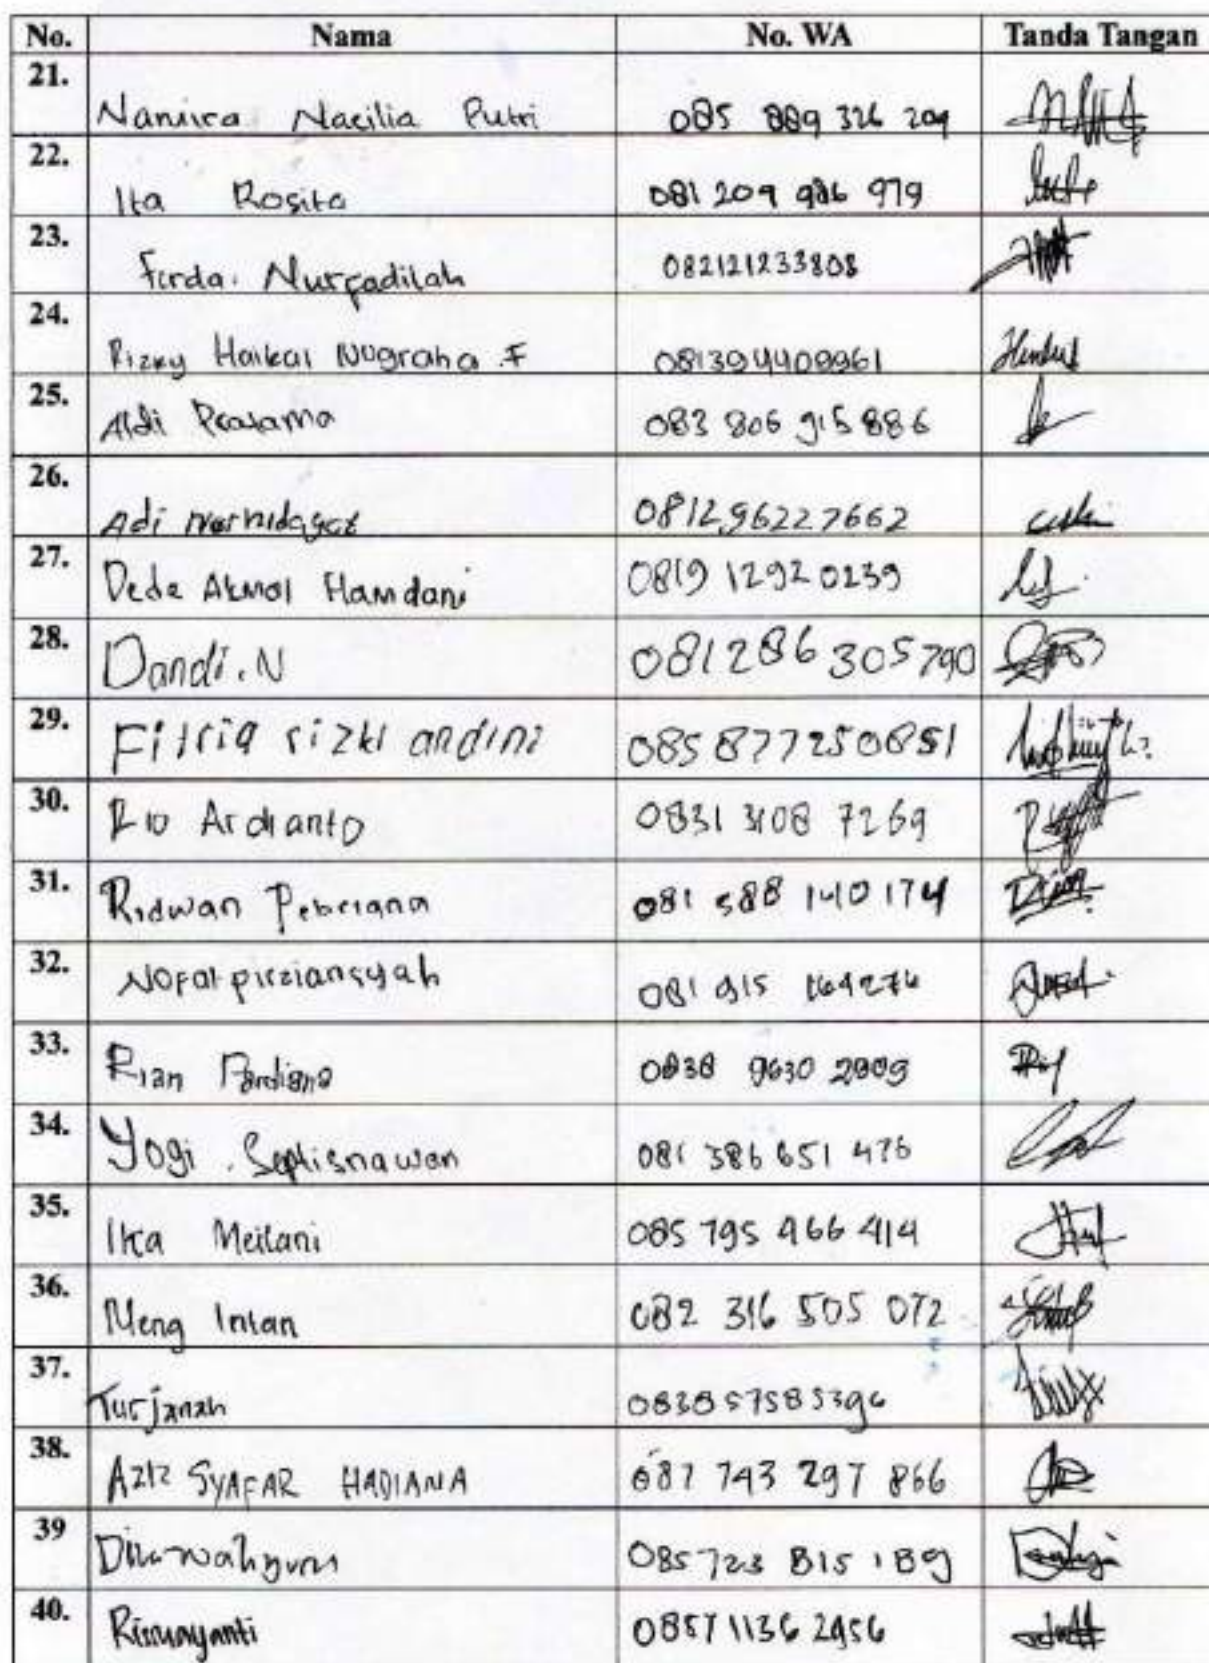 No. Nama No. WA Tanda Tangan
21. Namira Nacilia Putri 085 889 326 209
22. Ita Rosita 081 209 986 979
23. Firda. Nurfadilah 082121233808
24. Rizky Haikal Nugraha .F 081394409961
25. Aldi Pratama 083 806 915 886
26. Adi Nurhidayat 081296227662
27. Dede Akmal Hamdani 0819 1292 0239
28. Dandi.N 081286 305790
29. Fitria rizki andini 085877250851
30. Rio Ardianto 0831 3108 7269
31. Ridwan Pebriana 081 588 140 174
32. Nofal pirziansyah 081 915 164276
33. Rian Pardiana 0838 9630 2909
34. Yogi . Septisnawan 081 386 651 476
35. Ika Meilani 085 795 966 414
36. Meng Intan 082 316 505 072
37. Turjanah 083857585396
38. Aziz SYAFAR HADIANA 087 743 297 866
39 085723 815 189
40. 08571136 2956